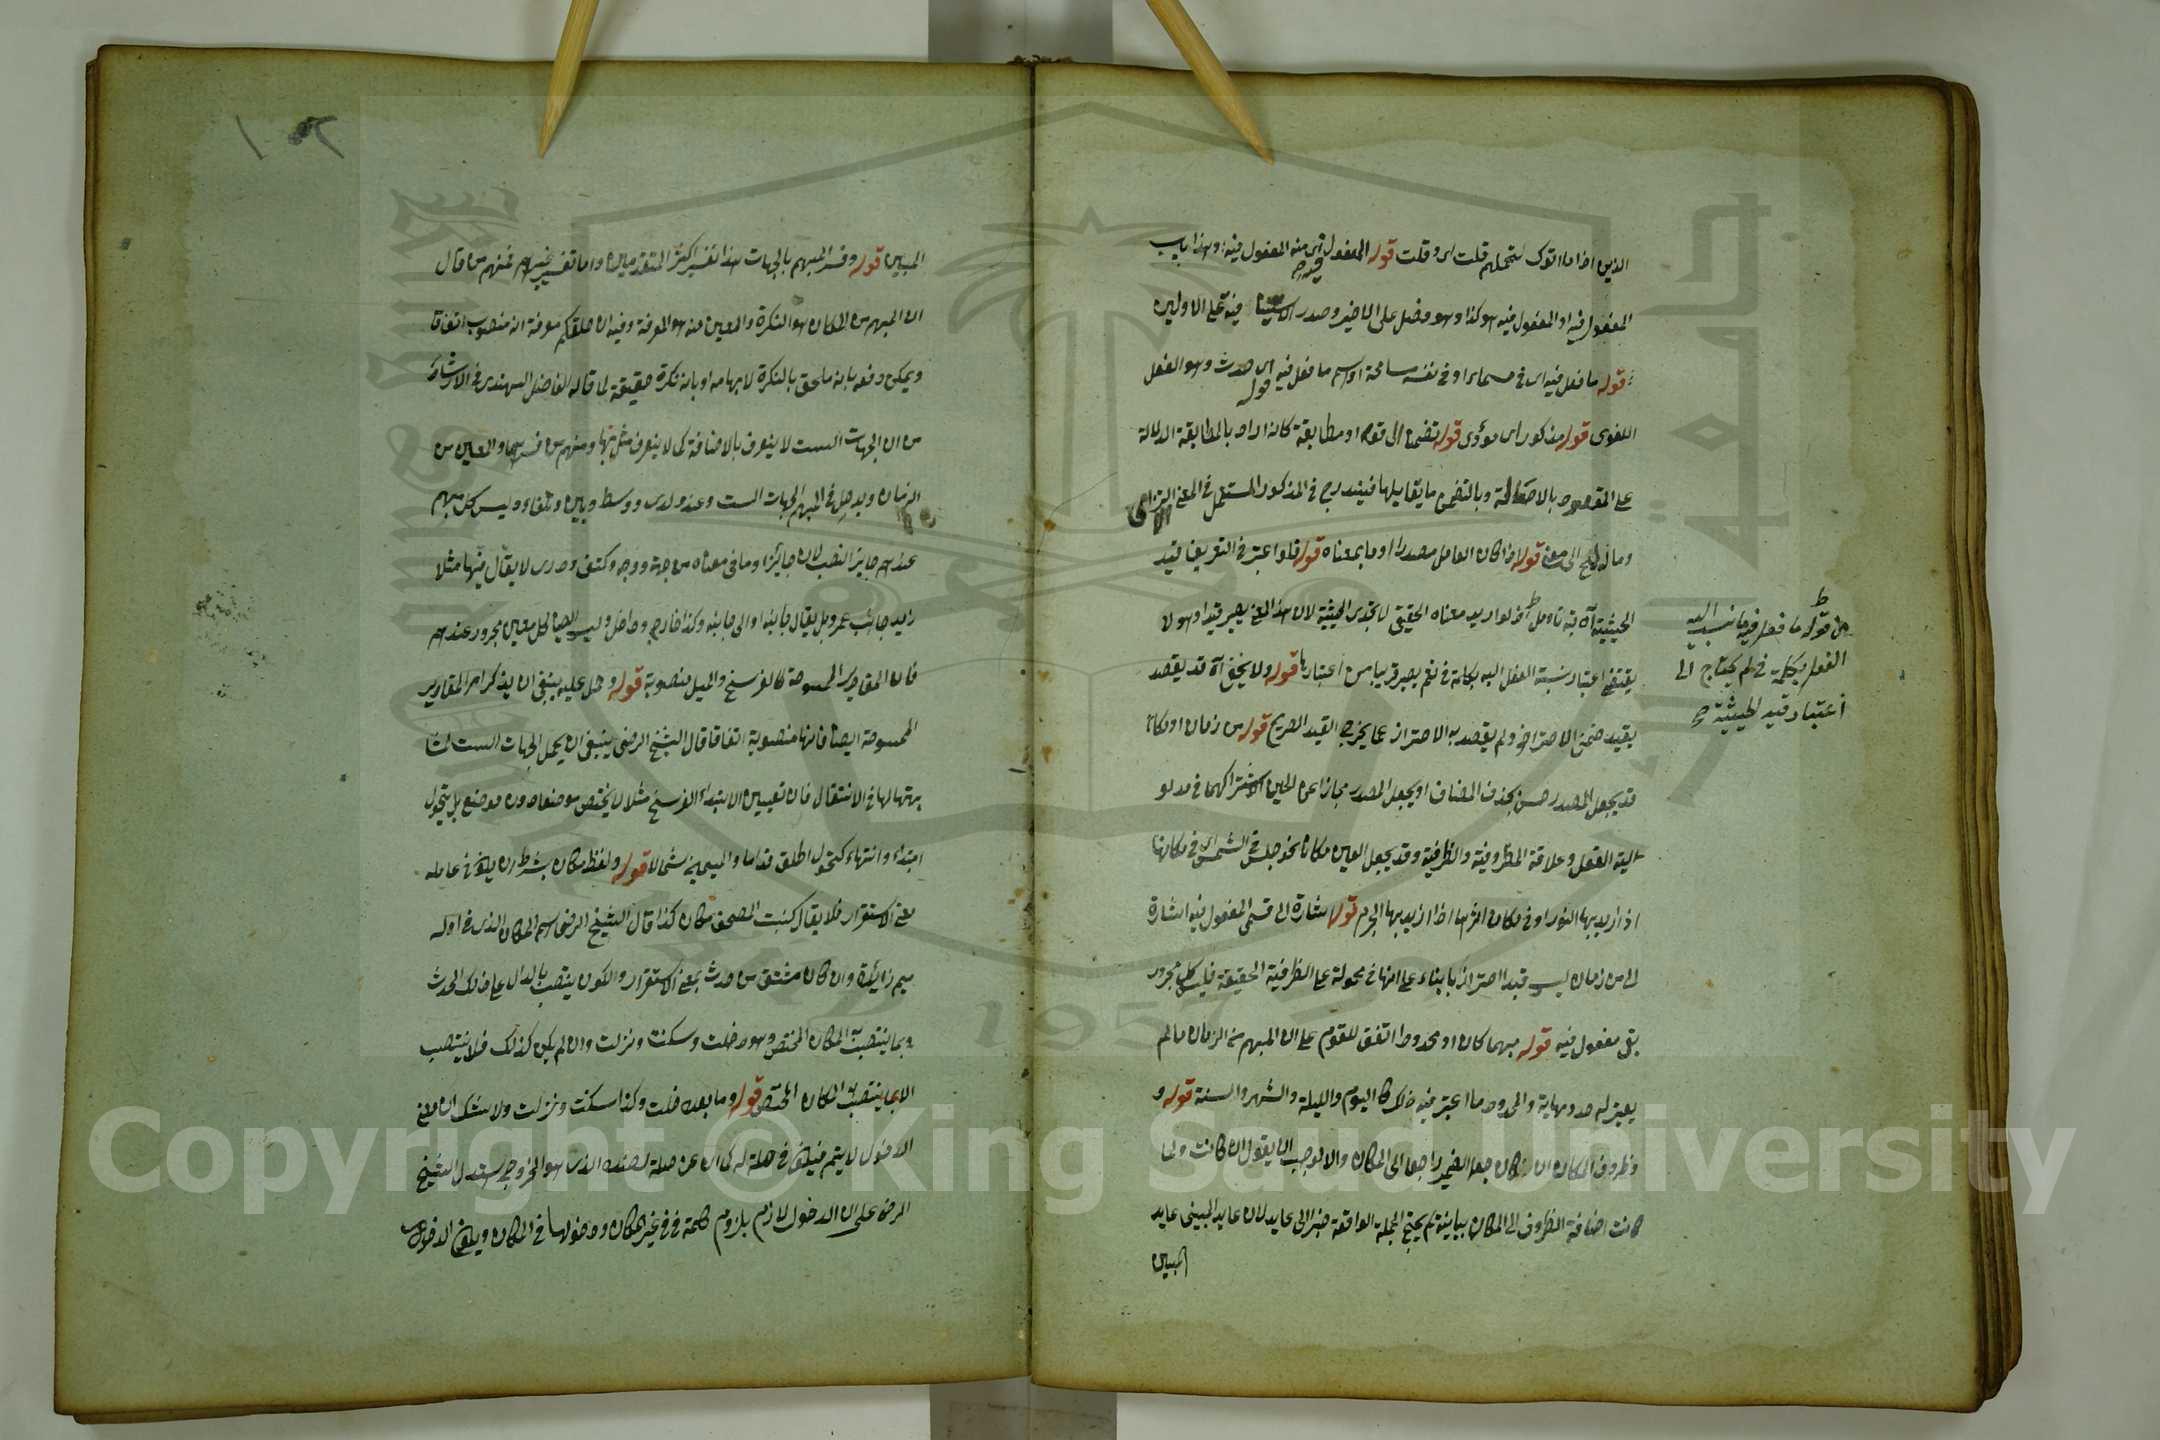 الذين اذا ما اتوك لتحملهم قلت اى وقلت قوله المفعول فيه اى منه المفعول فيه او هذا باب
المفعول فيه او المفعول فيه هو كذا وهو فصل على الاخير وصدر فيه على الاولين
قوله ما فعل فيه اى فى مسماه او فى نفسه مسامحة اى اسم ما فعل فيه اى حدث وهو الفعل
اللغوى قوله مذكور اى مؤدى قوله تضمنا الى قوله او مطابقة كانه اراد بالمطابقة الدلالة
على المقصود بالاصالة وبالتضمن ما يقابلها فيندرج فى المذكور المستعمل فى المعنى الالتزامى
وماله الى معنى قوله اذا كان العامل مصدرا او ما بمعناه قوله فلو اعتبر فى التعريف قيد
الحيثية آه لو اريد معناه الحقيقى لا يجدى الحيثية لان هذا المعنى يصير قيدا وهو لا
يقتضى اعتبار نسبة الفعل اليه بكلمة فى نعم يصير قريبا من اعتبارها قوله ولا يخفى آه قد يقصد
بقيد ضمنى الاحتراز ولم يقصد به الاحتراز عما يخرج القيد الصريح قوله من زمان او مكان
قد يجعل المصدر حسن بحذف المضاف او يجعل المصدر مجازا عن الحين لاشتراكهما فى مدلو
لية الفعل وعلاقة المظروفية والظرفية وقد يجعل العين مكانا نحو جلس فى الشمس اى فى مكانها
اذا اريد بها النور او فى مكان اثرها اذا اريد بها الجرم قوله اشارة الى قسمى المفعول فيه اشارة
الى من زمان ليس قيدا احترازيا بناء على انها فى محمولة على الظرفية الحقيقة فليس كل مجرور
بفى مفعول فيه قوله مبهما كان او محدودا اتفق للقوم على ان المبهم من الزمان ما لم
يعتبر له حد ونهاية والمحدود ما اعتبر فيه ذلك كاليوم والليلة والشهر والسنة قوله و
ظروف المكان ان كان جعل الضمير راجعا الى المكان والا لوجب ان يقول ان كانت ولما
كانت اضافة الظروف الى المكان بيانية لم يحتج الجملة الواقعة خبرا الى عايد لان عايد المبينى عايد
المبين
من قوله ما فعل فيه ما نسب اليه
الفعل بكلمة فى لم يحتاج الى
اعتبار قيد الحيثية صح
المبين قوله وفسر المبهم بالجهات هذا تفسير اكثر المتقدمين واما تفسير غيرهم فمنهم من قال
ان المبهم من المكان هو النكرة والمعين منه هو المعرفة وفيه ان خلفكم معرفة انه منصوب اتفاقا
ويمكن دفعه بانه ملحق بالنكرة لابهامه او بانه نكرة حقيقة لما قاله الفاضل الهندى فى الارشاد
من ان الجهات الست لا يتعرف بالاضافة كما لا يتعرف مثل بها ومنهم من فسرهما والمعين من
الزمان ويدخل فى المبهم الجهات الست وعند ولدى ووسط وبين وتلقاء وليس كل مبهم
عندهم جايز النصب لان جايزا وما فى معناه من جهة ووجه وكتف وذرى لا يقال فيها مثلا
زيد جانب عمرو بل يقال جانبه او الى جانبه وكذا خارج وداخل وليس ايضا كل معين مجرور عندهم
فان المقادير الممسوحة كالفرسخ والميل منصوبة قوله وحمل عليه ينبغى ان يذكر امر المقادير
الممسوحة ايضا فانها منصوبة اتفاقا قال الشيخ الرضى ينبغى ان يحمل الجهات الست لمشا
بهتها لها فى الانتقال فان تعيين الابتداء الفرسخ مثلا لا يختص موضعا دون موضع بل يتحول
ابتداء وانتهاء كتحول الخلف قداما واليمين شمالا قوله ولفظ مكان بشرط ان يكون فى عامله
معنى الاستقرار فلا يقال كتبت المصحف مكان كذا قال الشيخ الرضى اسم المكان الذى فى اوله
ميم زائدة وان كان مشتق من حدث بمعنى الاستقرار والكون ينتصب بالدال على ذلك الحدث
وبما ينتصب به المكان المختص وهو دخلت وسكنت ونزلت وان لم يكن كذلك فلا ينتصب
الا بما ينتصب به المكان المختص قوله وما بعد دخلت وكذا سكنت ونزلت ولا شك ان معنى
الدخول لا يتم فيكون فى صلة له كما ان عن صلة لضده الذى هو الخروج استدل الشيخ
الرضى على ان الدخول لازم بلزوم كلمة فى فى غير المكان ودخولها فى المكان وبكون الدخول
Copyright © King Saud University
1957